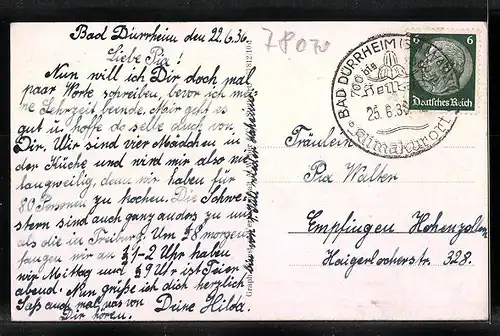 Bad Dürrheim den 22.6.36.
Liebe Pia!
Nun will ich Dir doch mal
paar Worte schreiben, bevor ich mei-
ne Lehrzeit beende. Mir geht es
gut u. hoffe dasselbe auch von
Dir. Wir sind vier Mädchen in
der Küche und wird mir also nie
langweilig, denn wir haben für
80 Personen zu kochen. Die Schwe-
stern sind auch ganz anders zu uns
als die in Freiburg. Um ½8 morgens
fangen wir an ½1-2 Uhr haben
wir Mittag und ½9 Uhr ist Feier-
abend. Nun grüße ich dich herzlich
Laß auch mal was von Deine Hilda.
Dir hören.
78070
BAD DÜRRHEIM
700 bis
Heil
25.6.36
Klimakurort
6 6
Deutsches Reich
Fräulein
Pia Walker
Empfingen Hohenzollern
Haigerlocherstr. 328.